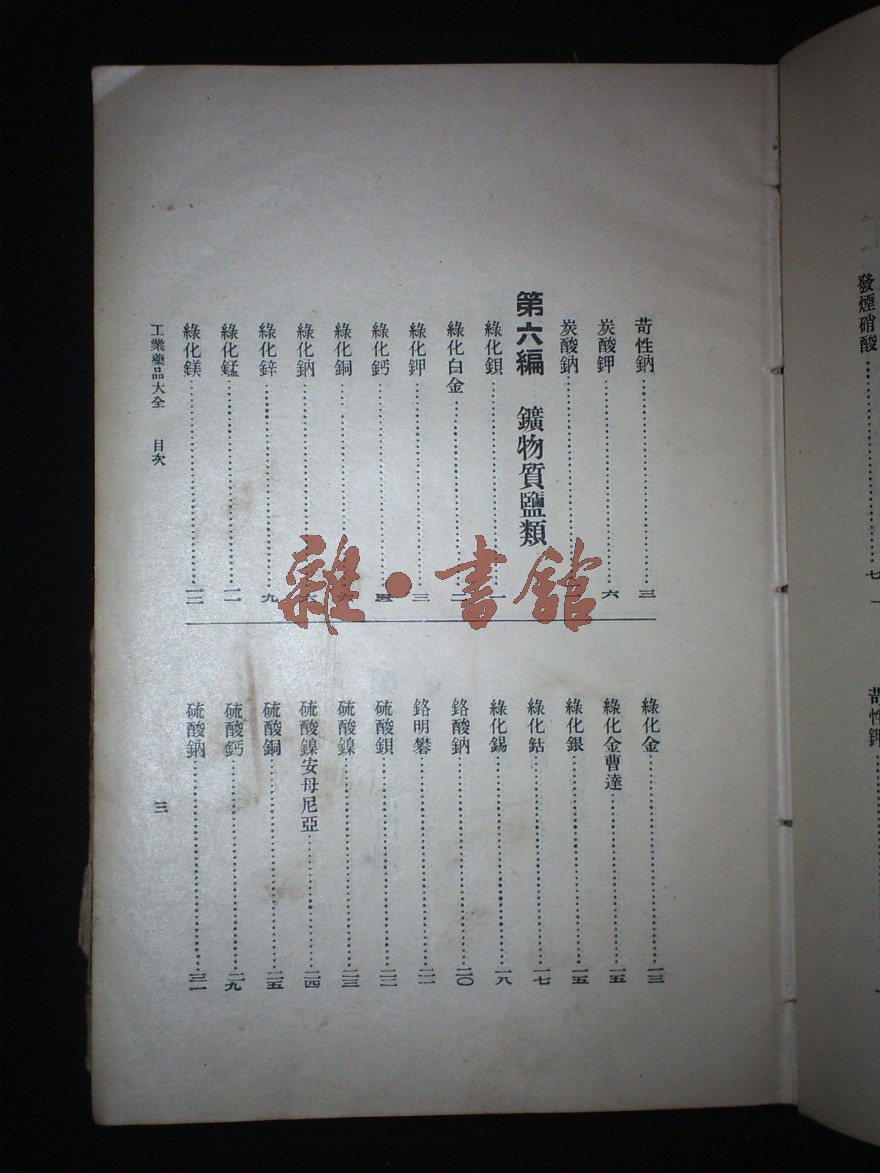 發煙硝酸……七
苛性鉀……
苛性鈉……三
炭酸鉀……六
炭酸鈉……
第六編 鑛物質鹽類
綠化鋇……一
綠化白金……二
綠化鉀……三
綠化鈣……四
綠化銅……六
綠化鈉……
綠化鋅……九
綠化錳……一一
綠化鎂……一二
綠化金……一三
綠化金曹達……一五
綠化銀……一五
綠化鈷……一七
綠化錫……一八
鉻酸鈉……二〇
鉻明礬……二一
硫酸鋇……二二
硫酸鎳……二三
硫酸鎳安母尼亞……二四
硫酸銅……二五
硫酸鈣……二九
硫酸鈉……三一
工業藥品大全 目次 三
雜·書館